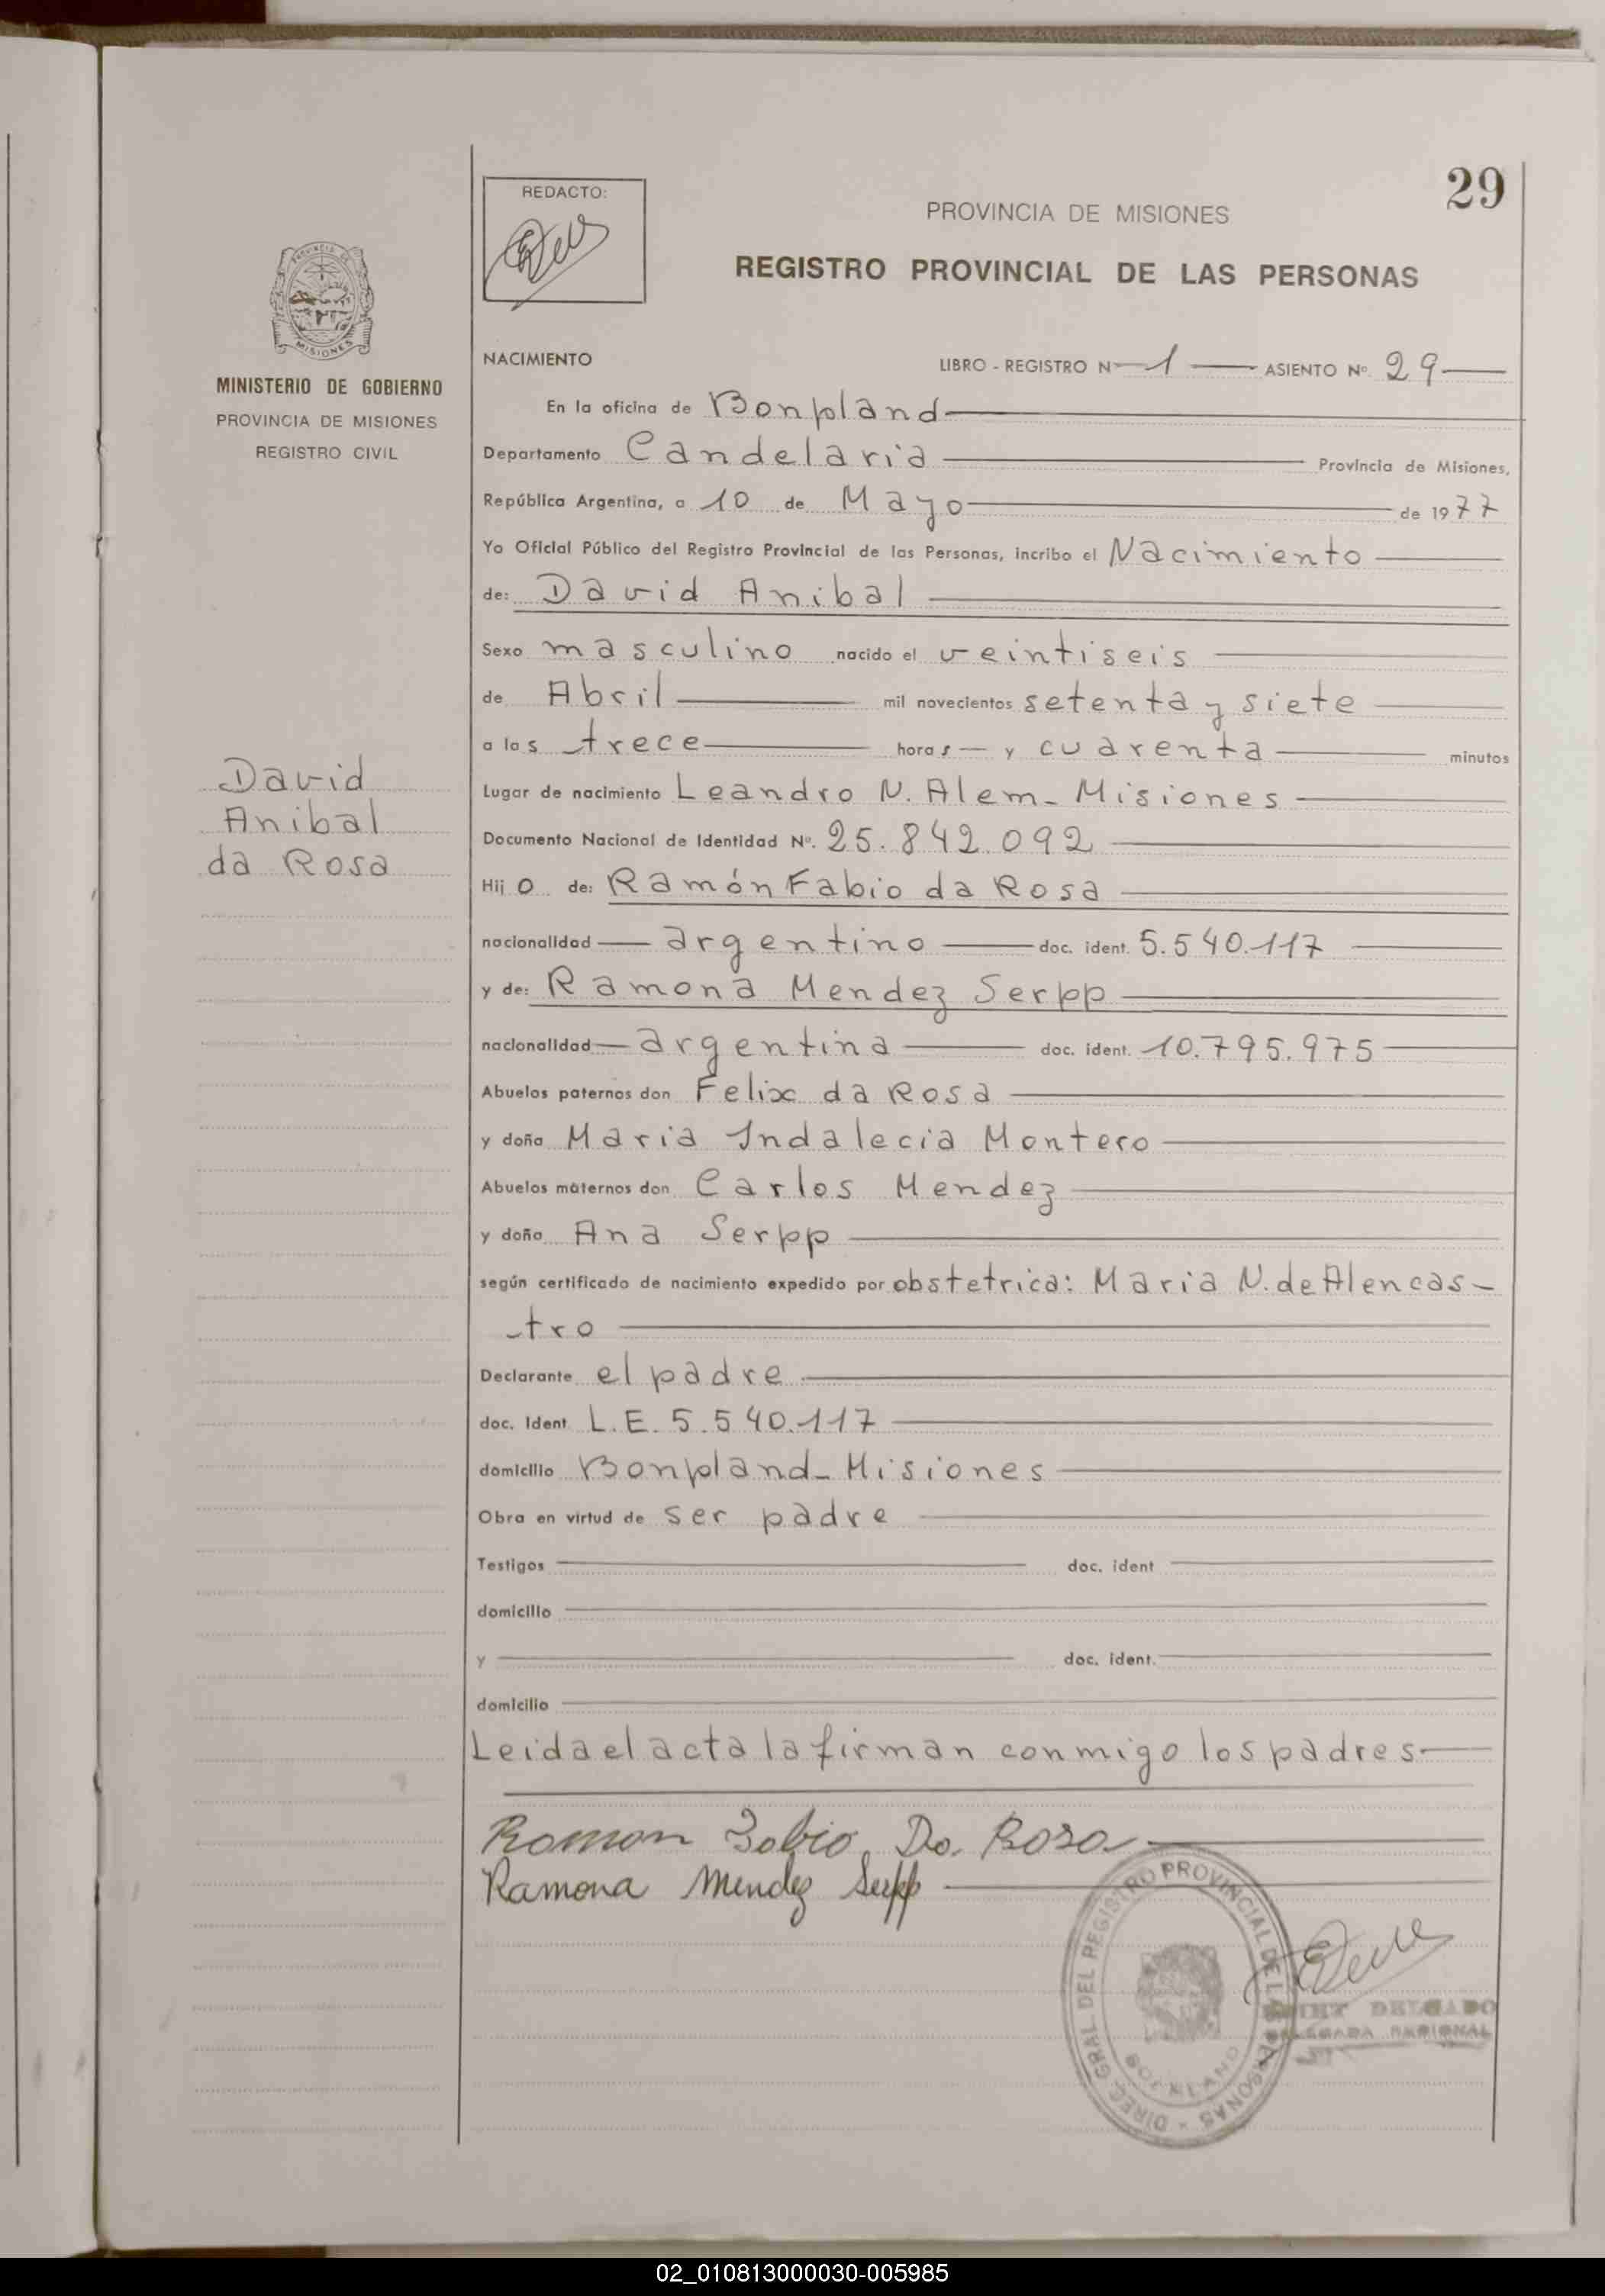 29
REDACTO:
PROVINCIA DE MISIONES
REGISTRO PROVINCIAL DE LAS PERSONAS
PROVINCIA DE
MISIONES
MINISTERIO DE GOBIERNO
PROVINCIA DE MISIONES
REGISTRO CIVIL
NACIMIENTO LIBRO - REGISTRO Nº 1 ASIENTO Nº. 29
En la oficina de Bonpland
Departamento Candelaria Provincia de Misiones,
República Argentina, a 10 de Mayo de 1977
Yo Oficial Público del Registro Provincial de las Personas, incribo el Nacimiento
de: David Anibal
Sexo masculino nacido el veintiseis
de Abril mil novecientos setenta y siete
a las trece horas y cuarenta minutos
Lugar de nacimiento Leandro N. Alem - Misiones
Documento Nacional de Identidad Nº. 25.842.092
Hijo de: Ramón Fabio da Rosa
nacionalidad argentino doc. ident. 5.540.117
y de: Ramona Mendez Serpp
nacionalidad argentina doc. ident. 10.795.975
Abuelos paternos don Felix da Rosa
y doña Maria Indalecia Montero
Abuelos maternos don Carlos Mendez
y doña Ana Serpp
según certificado de nacimiento expedido por obstetrica: Maria N. de Alencas-
tro
Declarante el padre
doc. Ident. L.E. 5.540.117
domicilio Bonpland - Misiones
Obra en virtud de ser padre
Testigos doc. ident
domicilio
y doc. ident.
domicilio
Leida el acta la firman conmigo los padres
Ramon Fabio Da Rosa
Ramona Mendez Serpp
David
Anibal
da Rosa
DIREC. GRAL DEL REGISTRO PROVINCIAL DE LAS PERSONAS -
BONPLAND
DELGADO
DELEGADA REGIONAL
02_010813000030-005985